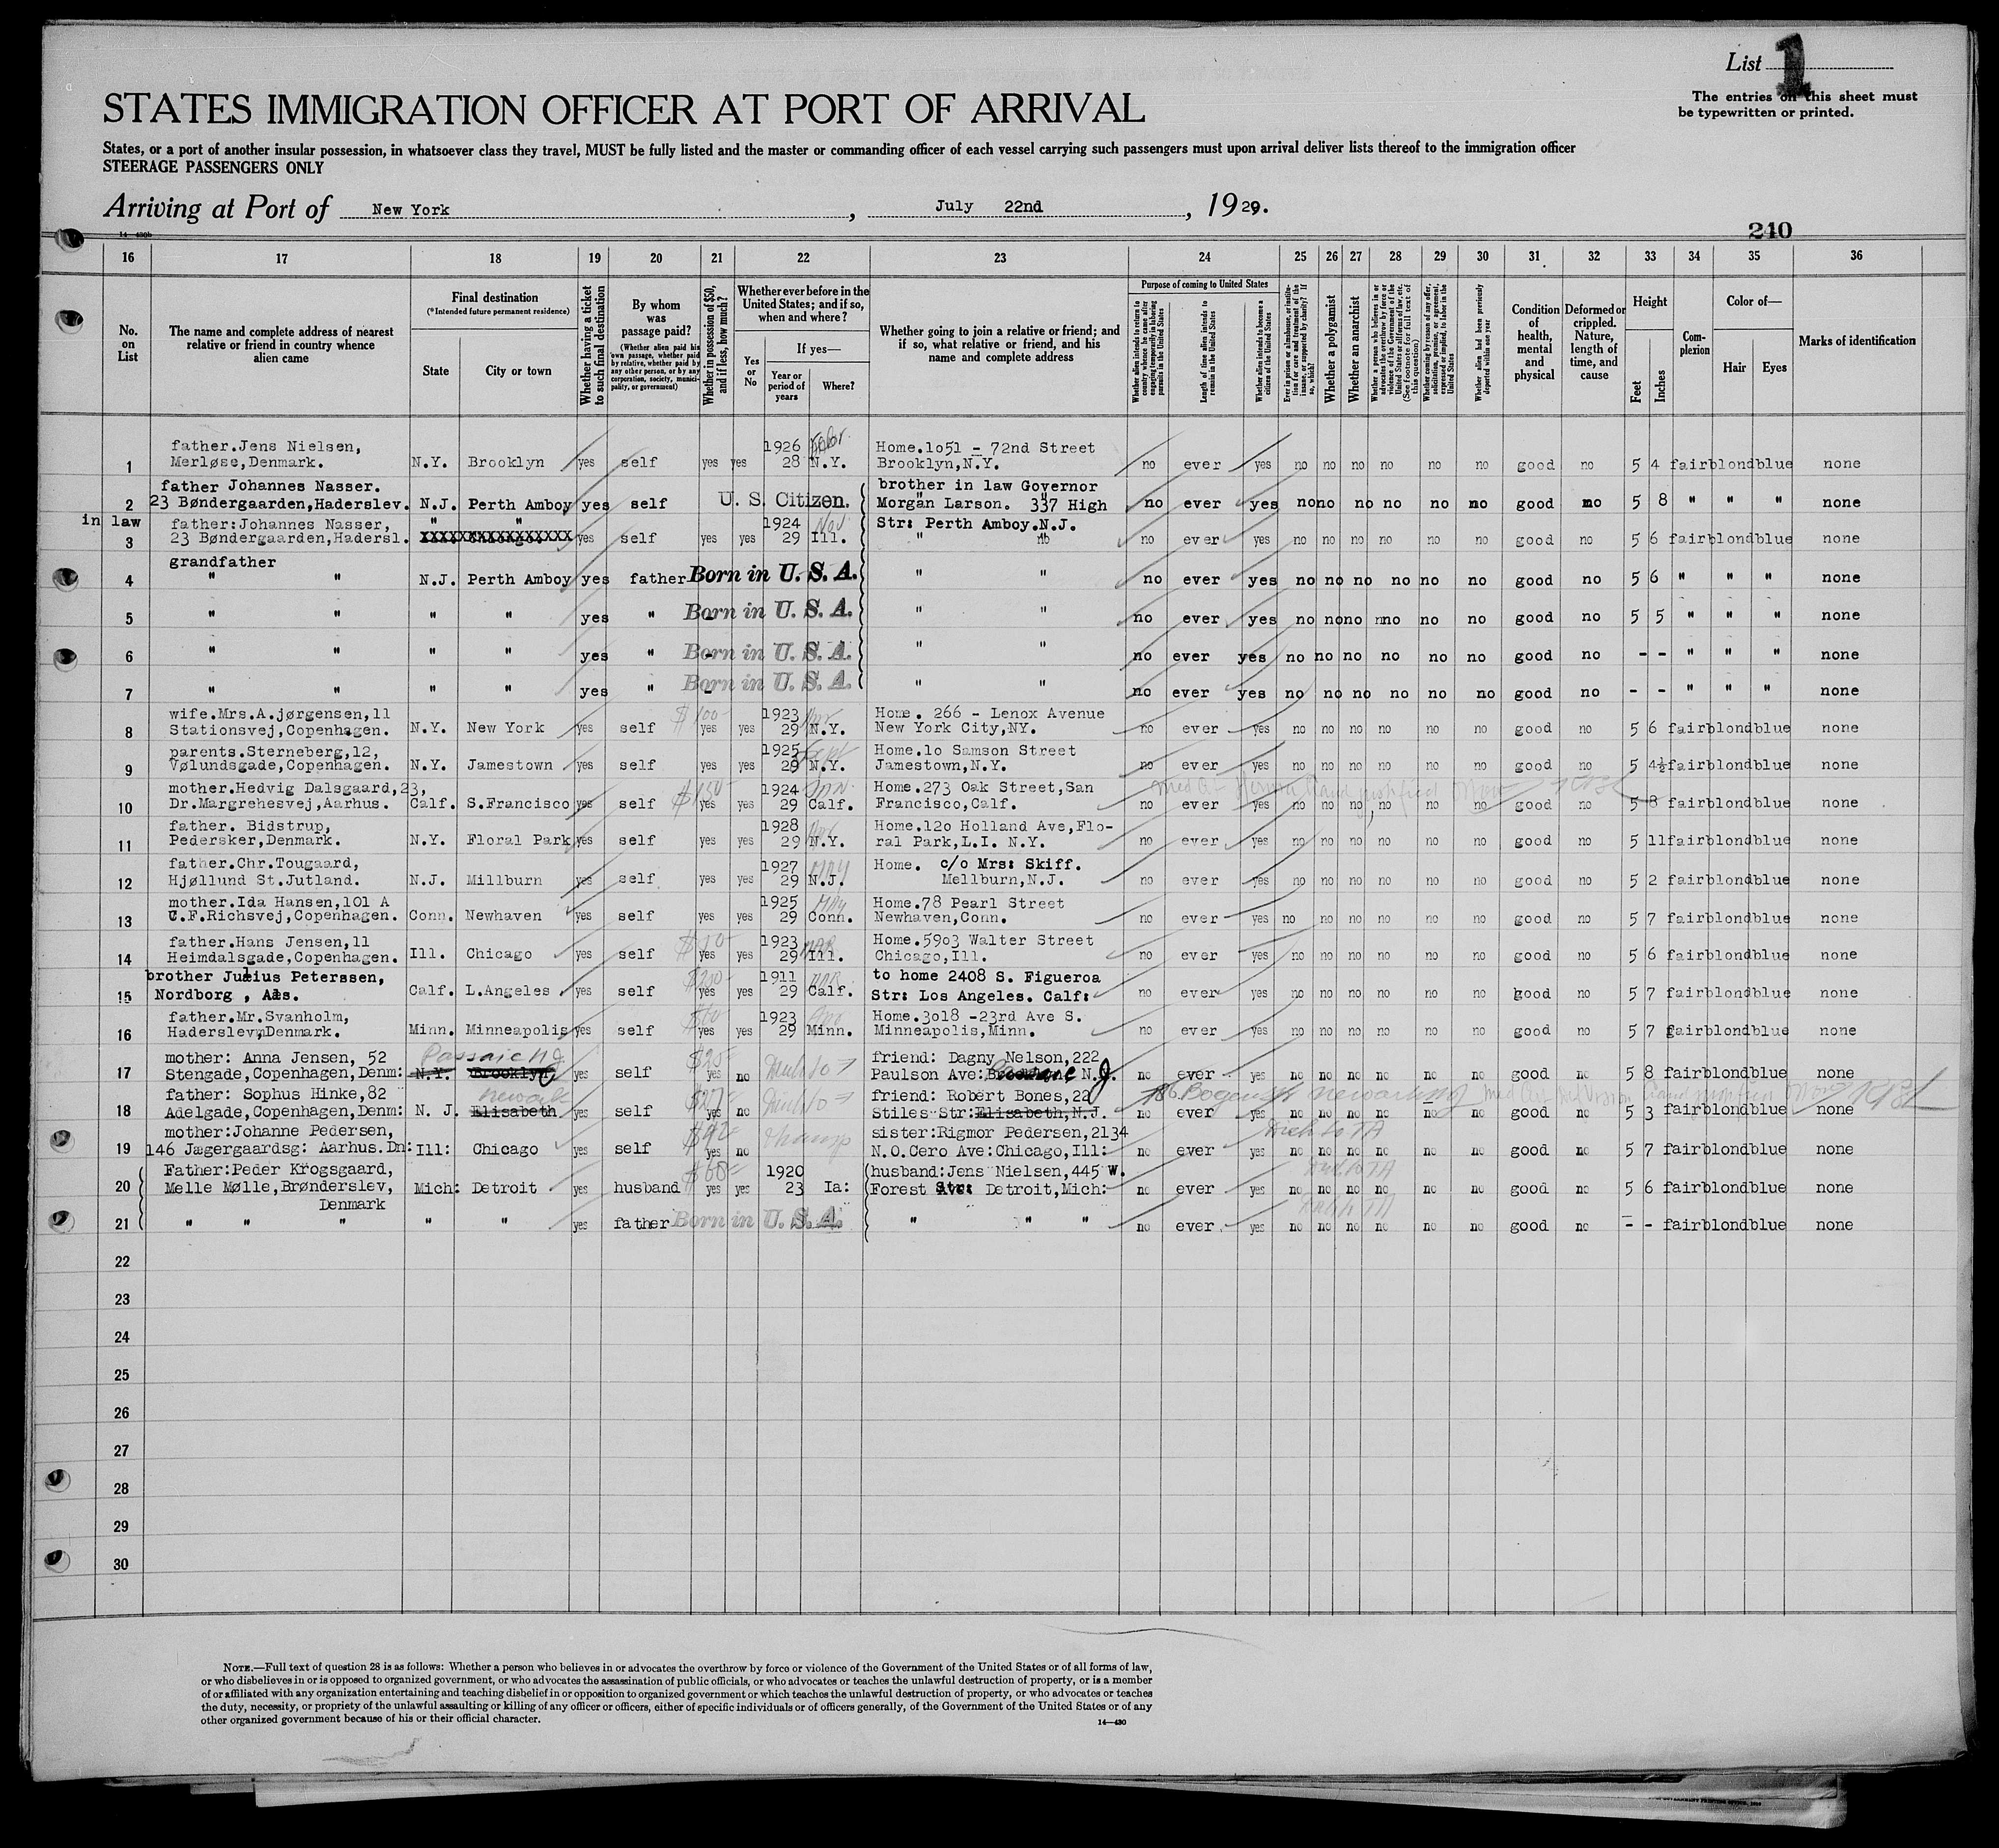 List 1
The entries on this sheet must
be typewritten or printed.
STATES IMMIGRATION OFFICER AT PORT OF ARRIVAL
States, or a port of another insular possession, in whatsoever class they travel, MUST be fully listed and the master or commanding officer of each vessel carrying such passengers must upon arrival deliver lists thereof to the immigration officer
STEERAGE PASSENGERS ONLY
Arriving at Port of New York, July 22nd, 1929.
14-430b
240
16 17 18 19 20 21 22 23 24 25 26 27 28 29 30 31 32 33 34 35 36
No. on List
The name and complete address of nearest relative or friend in country whence alien came
Final destination
(*Intended future permanent residence)
State
City or town
Whether having a ticket to such final destination
By whom was passage paid?
(Whether alien paid his own passage, whether paid by relative, whether paid by any other person, or by any corporation, society, municipality, or government)
Whether in possession of $50, and if less, how much?
Whether ever before in the United States; and if so, when and where?
Yes or No
If yes—
Year or period of years
Where?
Whether going to join a relative or friend; and if so, what relative or friend, and his name and complete address
Purpose of coming to United States
Whether alien intends to return to country whence he came after engaging temporarily in laboring pursuits in the United States
Length of time alien intends to remain in the United States
Whether alien intends to become a citizen of the United States
Ever in prison or almshouse, or institution for care and treatment of the insane, or supported by charity? If so, which?
Whether a polygamist
Whether an anarchist
Whether a person who believes in or advocates the overthrow by force or violence of the Government of the United States or all forms of law, etc. (See footnote for full text of this question)
Whether coming by reason of any offer, solicitation, promise, or agreement, expressed or implied, to labor in the United States
Whether alien had been previously deported within one year
Condition of health, mental and physical
Deformed or crippled. Nature, length of time, and cause
Height
Feet
Inches
Complexion
Color of—
Hair
Eyes
Marks of identification
father.Jens Nielsen, 1926 Home.1o51 - 72nd Street
1 Merløse,Denmark. N.Y. Brooklyn yes self yes yes 28 N.Y. Brooklyn,N.Y. no ever yes no no no no no no good no 5 4 fair blond blue none
father Johannes Nasser. brother in law Governor
2 23 Bøndergaarden,Haderslev. N.J. Perth Amboy yes self U. S. Citizen. Morgan Larson. 337 High no ever yes no no no no no no good no 5 8 " " " none
in law father:Johannes Nasser, " " 1924 Nov Str: Perth Amboy.N.J.
3 23 Bøndergaarden,Hadersl. yes self yes yes 29 Ill. " " no ever yes no no no no no no good no 5 6 fair blond blue none
grandfather
4 " " N.J. Perth Amboy yes father Born in U. S. A. " " no ever yes no no no no no no good no 5 6 " " " none
5 " " " " yes " Born in U. S. A. " " no ever yes no no no no no no good no 5 5 " " " none
6 " " " " yes " Born in U. S. A. " " no ever yes no no no no no no good no - - " " " none
7 " " " " yes " Born in U. S. A. " " no ever yes no no no no no no good no - - " " " none
wife.Mrs.A.jørgensen,11 $100 1923 Home. 266 - Lenox Avenue
8 Stationsvej,Copenhagen. N.Y. New York yes self yes yes 29 N.Y. New York City,NY. no ever yes no no no no no no good no 5 6 fair blond blue none
parents.Sterneberg,12, 1925 Sept Home.1o Samson Street
9 Vølundsgade,Copenhagen. N.Y. Jamestown yes self yes yes 29 N.Y. Jamestown,N.Y. no ever yes no no no no no no good no 5 4½ fair blond blue none
mother.Hedvig Dalsgaard,23, $150 1924 Home.273 Oak Street,San
10 Dr.Margrehesvej,Aarhus. Calf. S.Francisco yes self yes yes 29 Calf. Francisco,Calf. no ever yes no no no no no no good no 5 8 fair blond blue none
father. Bidstrup, 1928 Home.12o Holland Ave,Flo-
11 Pedersker,Denmark. N.Y. Floral Park yes self yes yes 29 N.Y. ral Park,L.I. N.Y. no ever yes no no no no no no good no 5 11 fair blond blue none
father.Chr.Tougaard, 1927 May Home. c/o Mrs: Skiff.
12 Hjøllund St.Jutland. N.J. Millburn yes self yes yes 29 N.J. Mellburn,N.J. no ever yes no no no no no no good no 5 2 fair blond blue none
mother.Ida Hansen,101 A 1925 May Home.78 Pearl Street
13 C.F.Richsvej,Copenhagen. Conn. Newhaven yes self yes yes 29 Conn. Newhaven,Conn. no ever yes no no no no no no good no 5 7 fair blond blue none
father.Hans Jensen,11 1923 Mar Home.59o3 Walter Street
14 Heimdalsgade,Copenhagen. Ill. Chicago yes self yes yes 29 Ill. Chicago,Ill. no ever yes no no no no no no good no 5 6 fair blond blue none
brother Julius Peterssen, $200 1911 Mar to home 2408 S. Figueroa
15 Nordborg , Als. Calf. L.Angeles yes self yes yes 29 Calf. Str: Los Angeles. Calf: no ever yes no no no no no no good no 5 7 fair blond blue none
father.Mr.Svanholm, 1923 Home.3o18 -23rd Ave S.
16 Haderslev,Denmark. Minn. Minneapolis yes self yes yes 29 Minn. Minneapolis,Minn. no ever yes no no no no no no good no 5 7 fair blond blue none
mother: Anna Jensen, 52 Passaic N.J. $25 friend: Dagny Nelson,222
17 Stengade,Copenhagen,Denm: N.Y. Brooklyn yes self yes no Paulson Ave: N.J. no ever yes no no no no no no good no 5 8 fair blond blue none
father: Sophus Hinke,82 Newark friend: Robert Bones,22
18 Adelgade,Copenhagen,Denm: N. J. Elisabeth yes self yes no Stiles Str:Elisabeth,N.J. no ever yes no no no no no no good no 5 3 fair blond blue none
mother:Johanne Pedersen, $42 sister:Rigmor Pedersen,2134
19 146 Jægergaardsg: Aarhus.Dn: Ill: Chicago yes self yes no N.O.Cero Ave:Chicago,Ill: no ever yes no no no no no no good no 5 7 fair blond blue none
Father:Peder Krogsgaard, $60 1920 husband:Jens Nielsen,445 W.
20 Melle Mølle,Brønderslev, Mich: Detroit yes husband yes yes 23 Ia: Forest Str: Detroit,Mich: no ever yes no no no no no no good no 5 6 fair blond blue none
Denmark
21 " " " " " yes father Born in U. S. A. " " " no ever yes no no no no no no good no - - fair blond blue none
22
23
24
25
26
27
28
29
30
NOTE.—Full text of question 28 is as follows: Whether a person who believes in or advocates the overthrow by force or violence of the Government of the United States or of all forms of law,
or who disbelieves in or is opposed to organized government, or who advocates the assassination of public officials, or who advocates or teaches the unlawful destruction of property, or is a member
of or affiliated with any organization entertaining and teaching disbelief in or opposition to organized government or which teaches the unlawful destruction of property, or who advocates or teaches
the duty, necessity, or propriety of the unlawful assaulting or killing of any officer or officers, either of specific individuals or of officers generally, of the Government of the United States or of any
other organized government because of his or their official character.
14—430